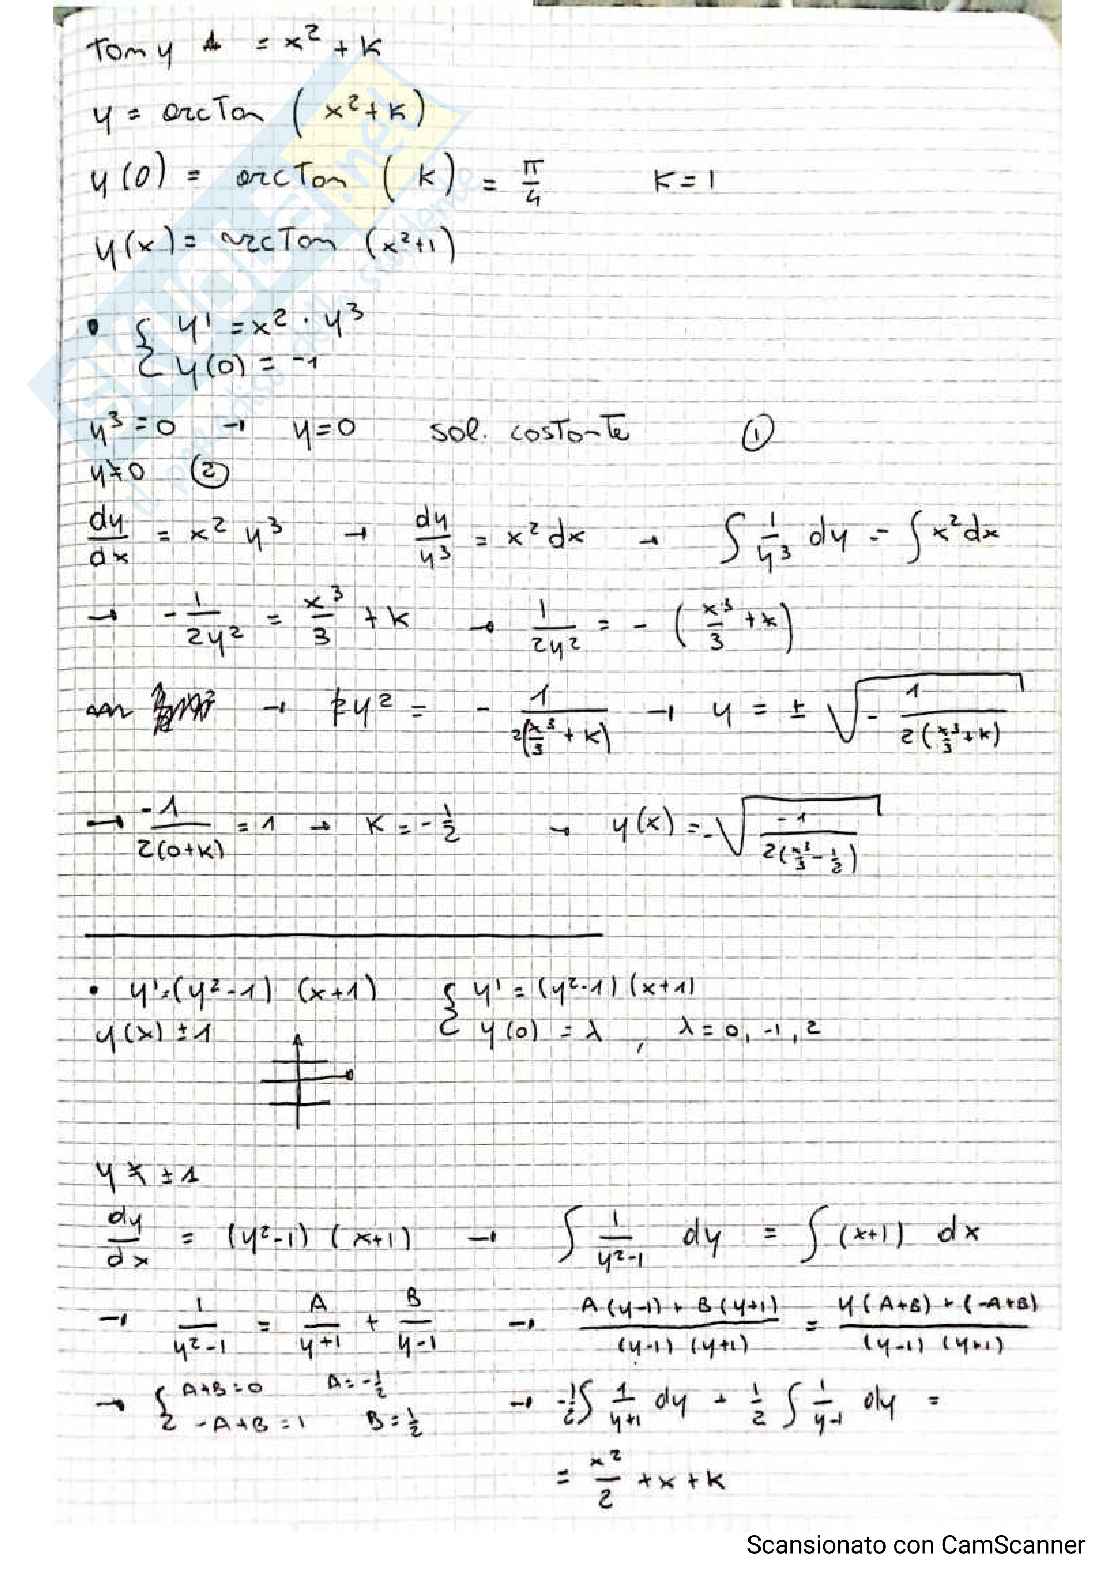 tan y = x² + k
y = arctan ( x² + k )
y(0) = arctan ( k ) = π/4 k = 1
y(x) = arctan (x²+1)
• { y' = x² · y³
{ y(0) = -1
y³ = 0 → y = 0 sol. costante ①
y ≠ 0 ②
dy/dx = x² y³ → dy/y³ = x² dx → ∫ 1/y³ dy = ∫ x² dx
→ - 1/2y² = x³/3 + k → 1/2y² = - (x³/3 + k)
→ y² = - 1/2(x³/3 + k) → y = ± √(- 1/2(x³/3 + k))
→ -1/2(0+k) = 1 → k = - 1/2 → y(x) = -√(-1/2(x³/3 - 1/2))
• y' = (y²-1) (x+1) { y' = (y²-1) (x+1)
y(x) ± 1 { y(0) = λ , λ = 0, -1, 2
y ≠ ± 1
dy/dx = (y²-1) (x+1) → ∫ 1/y²-1 dy = ∫ (x+1) dx
→ 1/y²-1 = A/y+1 + B/y-1 → A(y-1) + B(y+1)/(y-1) (y+1) = y(A+B) + (-A+B)/(y-1) (y+1)
→ { A+B = 0 A = -1/2 → -1/2 ∫ 1/y+1 dy + 1/2 ∫ 1/y-1 dy =
{ -A+B = 1 B = 1/2
= x²/2 + x + k
Scansionato con CamScanner
skuola.net